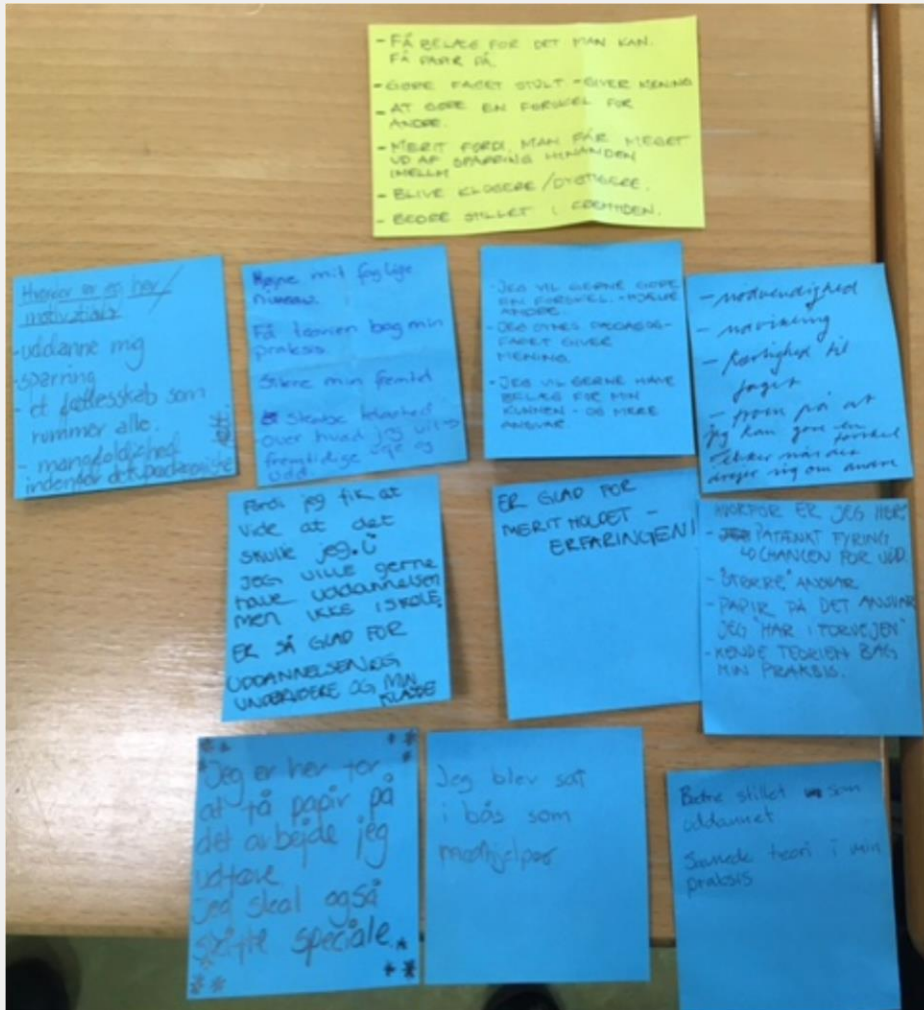 - FÅ BELÆG FOR DET MAN KAN.
FÅ PAPIR PÅ.
- GØRE FAGET STOLT - GIVER MENING
- AT GØRE EN FORSKEL FOR
ANDRE.
- MERIT FORDI, MAN FÅR MEGET
UD AF SPARRING HINANDEN
IMELLM
- BLIVE KLOGERE / DYGTIGERE.
- BEDRE STILLET I FREMTIDEN.
Hvorfor er jeg her /
motivation
- uddanne mig
- sparring
- et fællesskab som
rummer alle.
- mangfoldighed
indenfor det pædagogiske
Højne mit faglige
niveau
Få teorien bag min
praksis
Sikre min fremtid
over hvad jeg vil
fremtidige
udd.
- JEG VIL GERNE GØRE
EN FORSKEL. - HJÆLPE
ANDRE.
- JEG SYNES PÆDAGOG-
FAGET GIVER
MENING
- JEG VIL GERNE HAVE
BELÆG FOR MIN
KUNNEN - OG MERE
ANSVAR.
- nødvendighed
- udvikling
- kærlighed til
faget
- troen på at
jeg kan gøre en
forskel
når det
drejer sig om andre
Fordi jeg fik at
vide at det
skulle jeg.
JEG VILLE GERNE
HAVE UDDANNELSEN
MEN IKKE I SKOLE.
ER SÅ GLAD FOR
UDDANNELSEN OG
UNDERVISERE OG MIN
KLASSE
ER GLAD FOR
MERITHOLDET -
ERFARINGEN!
HVORFOR ER JEG HER?
- PÅTÆNKT FYRING
CHANCEN FOR UDD.
- "STØRRE" ANSVAR
- PAPIR PÅ DET ANSVAR
JEG "HAR I FORVEJEN"
- KENDE TEORIEN BAG
MIN PRAKSIS.
Jeg er her for
at få papir på
det arbejde jeg
udføre
Jeg skal også
skifte speciale.
Jeg blev sat
i bås som
medhjælper
Bedre stillet som
uddannet
Savnede teori i min
praksis